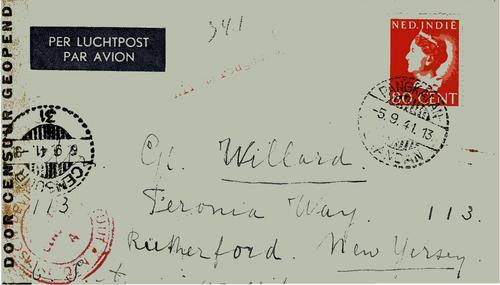 DOOR CENSUUR GEOPEND
PER LUCHTPOST
PAR AVION
341
NED. INDIË
80 CENT
5.9.41.13
31
6.9.41.
CENSUUR
Willard.
113
Peronia Way, 113.
Rutherford. New Yersey.